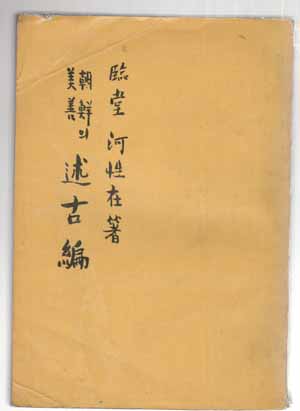 臨堂 河性在著
朝鮮의
美善
述古編